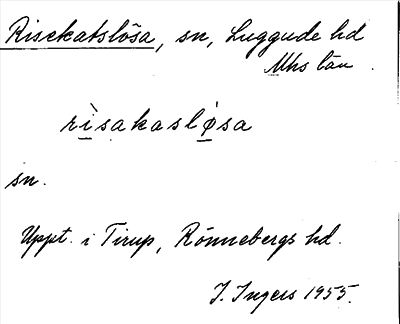 Risekatslösa, sn, Luggude hd
Mhs län.
rìsakasløsa
sn.
Uppt. i Tirup, Rönnebergs hd.
I. Ingers 1955.